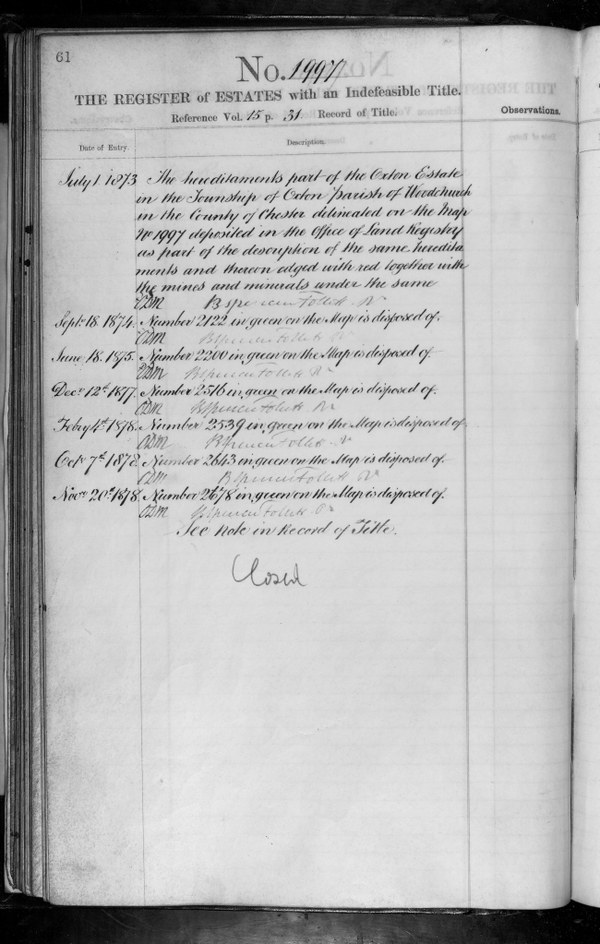 61
No. 1997
THE REGISTER of ESTATES with an Indefeasible Title.
Reference Vol. 15 p. 31 Record of Title.
Observations.
Date of Entry.
Description.
July 1 1873 The hereditaments part of the Oxton Estate
in the Township of Oxton Parish of Woodchurch
in the County of Chester delineated on the Map
No 1997 deposited in the Office of Land Registry
as part of the description of the same heredita
ments and thereon edged with red together with
the mines and minerals under the same
B Spencer Follett Rr
Septr. 18. 1874. Number 2122 in green on the Map is disposed of.
B Spencer Follett Rr
June 18. 1875. Number 2200 in green on the Map is disposed of
B Spencer Follett Rr
Decr 12th 1877. Number 2516 in green on the Map is disposed of.
B Spencer Follett Rr
Feby 4th 1878. Number 2539 in green on the Map is disposed of
B Spencer Follett Rr
Octr 7th 1878. Number 2643 in green on the Map is disposed of
B Spencer Follett Rr
Novr 20th 1878. Number 2678 in green on the Map is disposed of.
B Spencer Follett Rr
See Note in Record of Title.
Closed